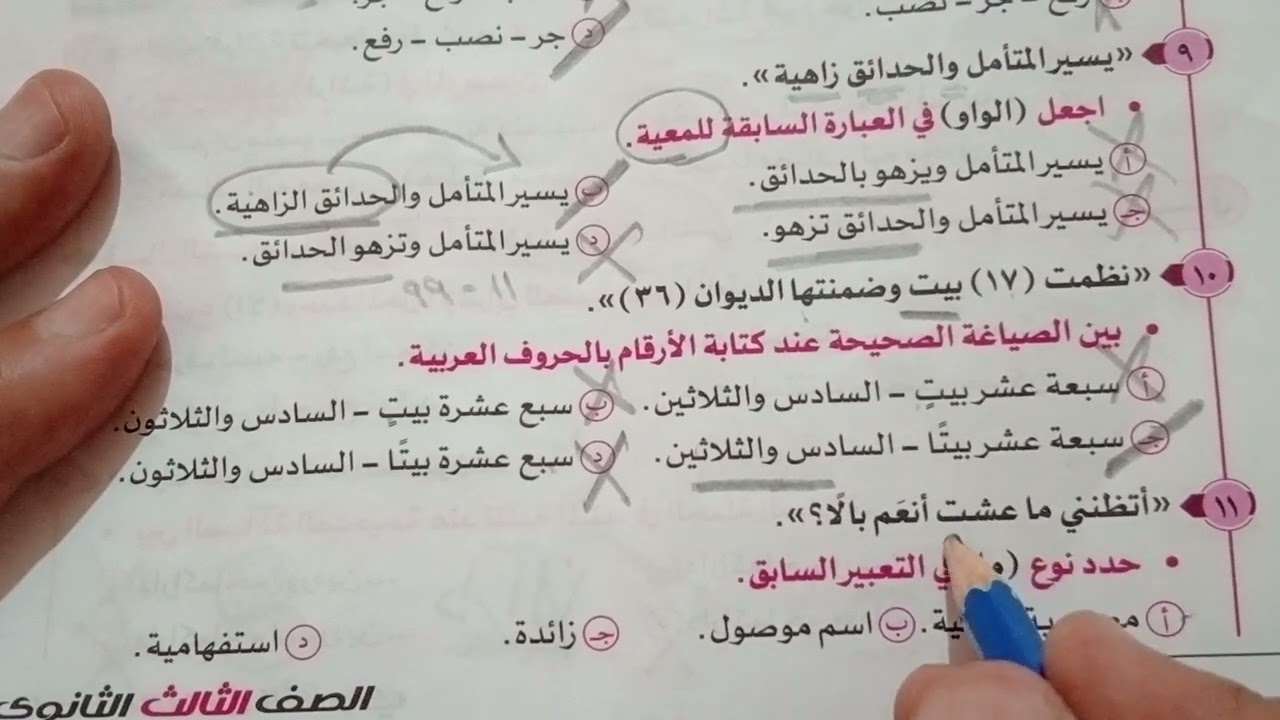 رفع – جر – نصب.
د جر – نصب – رفع.
٩ «يسير المتأمل والحدائق زاهية».
• اجعل (الواو) في العبارة السابقة للمعية.
أ يسير المتأمل ويزهو بالحدائق. ب يسير المتأمل والحدائق الزاهية.
جـ يسير المتأمل والحدائق تزهو. د يسير المتأمل وتزهو الحدائق.
١١ – ٩٩
١٠ «نظمت (١٧) بيت وضمنتها الديوان (٣٦)».
• بين الصياغة الصحيحة عند كتابة الأرقام بالحروف العربية.
أ سبعة عشر بيتٍ – السادس والثلاثين. ب سبع عشرة بيتٍ – السادس والثلاثون.
جـ سبعة عشر بيتًا – السادس والثلاثين. د سبع عشرة بيتًا – السادس والثلاثون.
١١ «أتظنني ما عشت أنعَم بالًا؟».
• حدد نوع التعبير السابق.
أ ب اسم موصول. جـ زائدة. د استفهامية.
الصف الثالث الثانوي